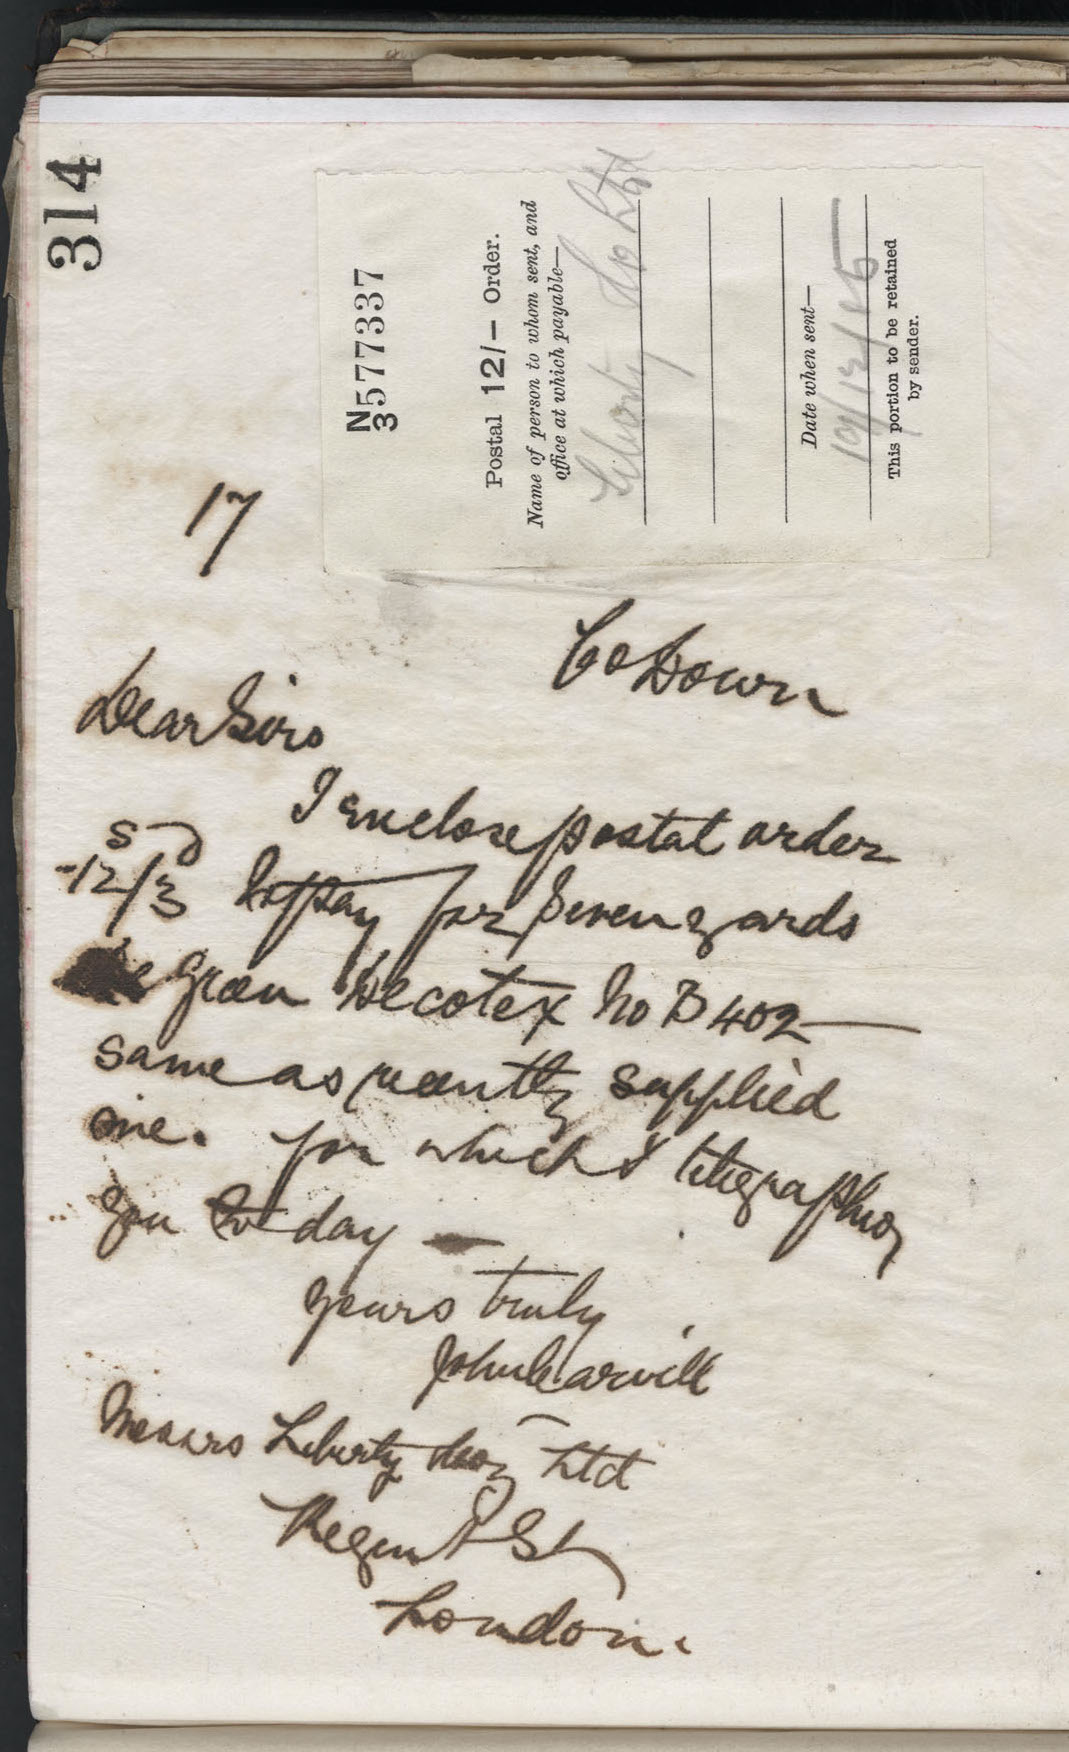 314
N
3 577337
Postal 12/- Order.
Name of person to whom sent, and
office at which payable—
Liberty & Co Ltd
Date when sent—
10/12/15
This portion to be retained
by sender.
17
Co Down
Dear Sirs
I enclose postal order
s d
12/3 to pay for seven yards
green Decotex No B 402—
same as recently supplied
me. for which I telegraphed
you to day —
yours truly
John Carvill
Messrs Liberty & Co Ltd
Regent St
London.